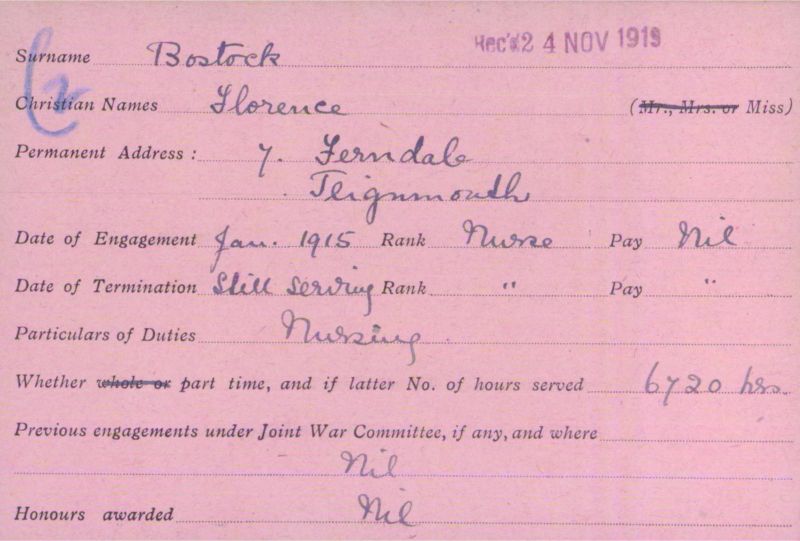 Rec'd 24 NOV 1919
Surname Bostock
Christian Names Florence (Mr., Mrs. or Miss)
Permanent Address: 7. Ferndale
Teignmouth
Date of Engagement Jan. 1915 Rank Nurse Pay Nil
Date of Termination Still serving Rank " Pay "
Particulars of Duties Nursing.
Whether whole or part time, and if latter No. of hours served 6720 hrs.
Previous engagements under Joint War Committee, if any, and where
Nil
Honours awarded Nil